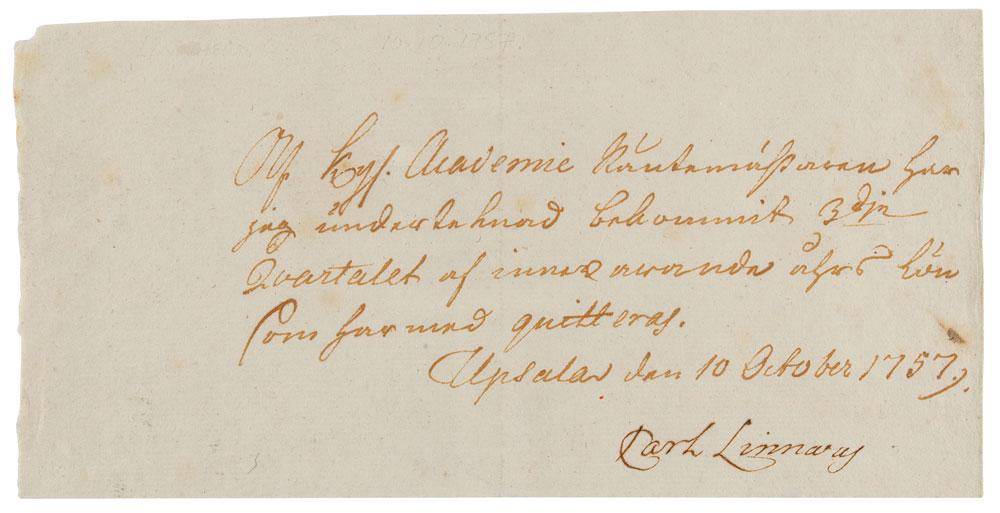 10.10.1757.
Af Kgs. Academie Räntemästaren har
jag undertecknad bekommit 3dje
Qvartalet af innevarande åhrs lön
som harmed quitteras.
Upsala den 10 October 1757.
Carl Linnæus